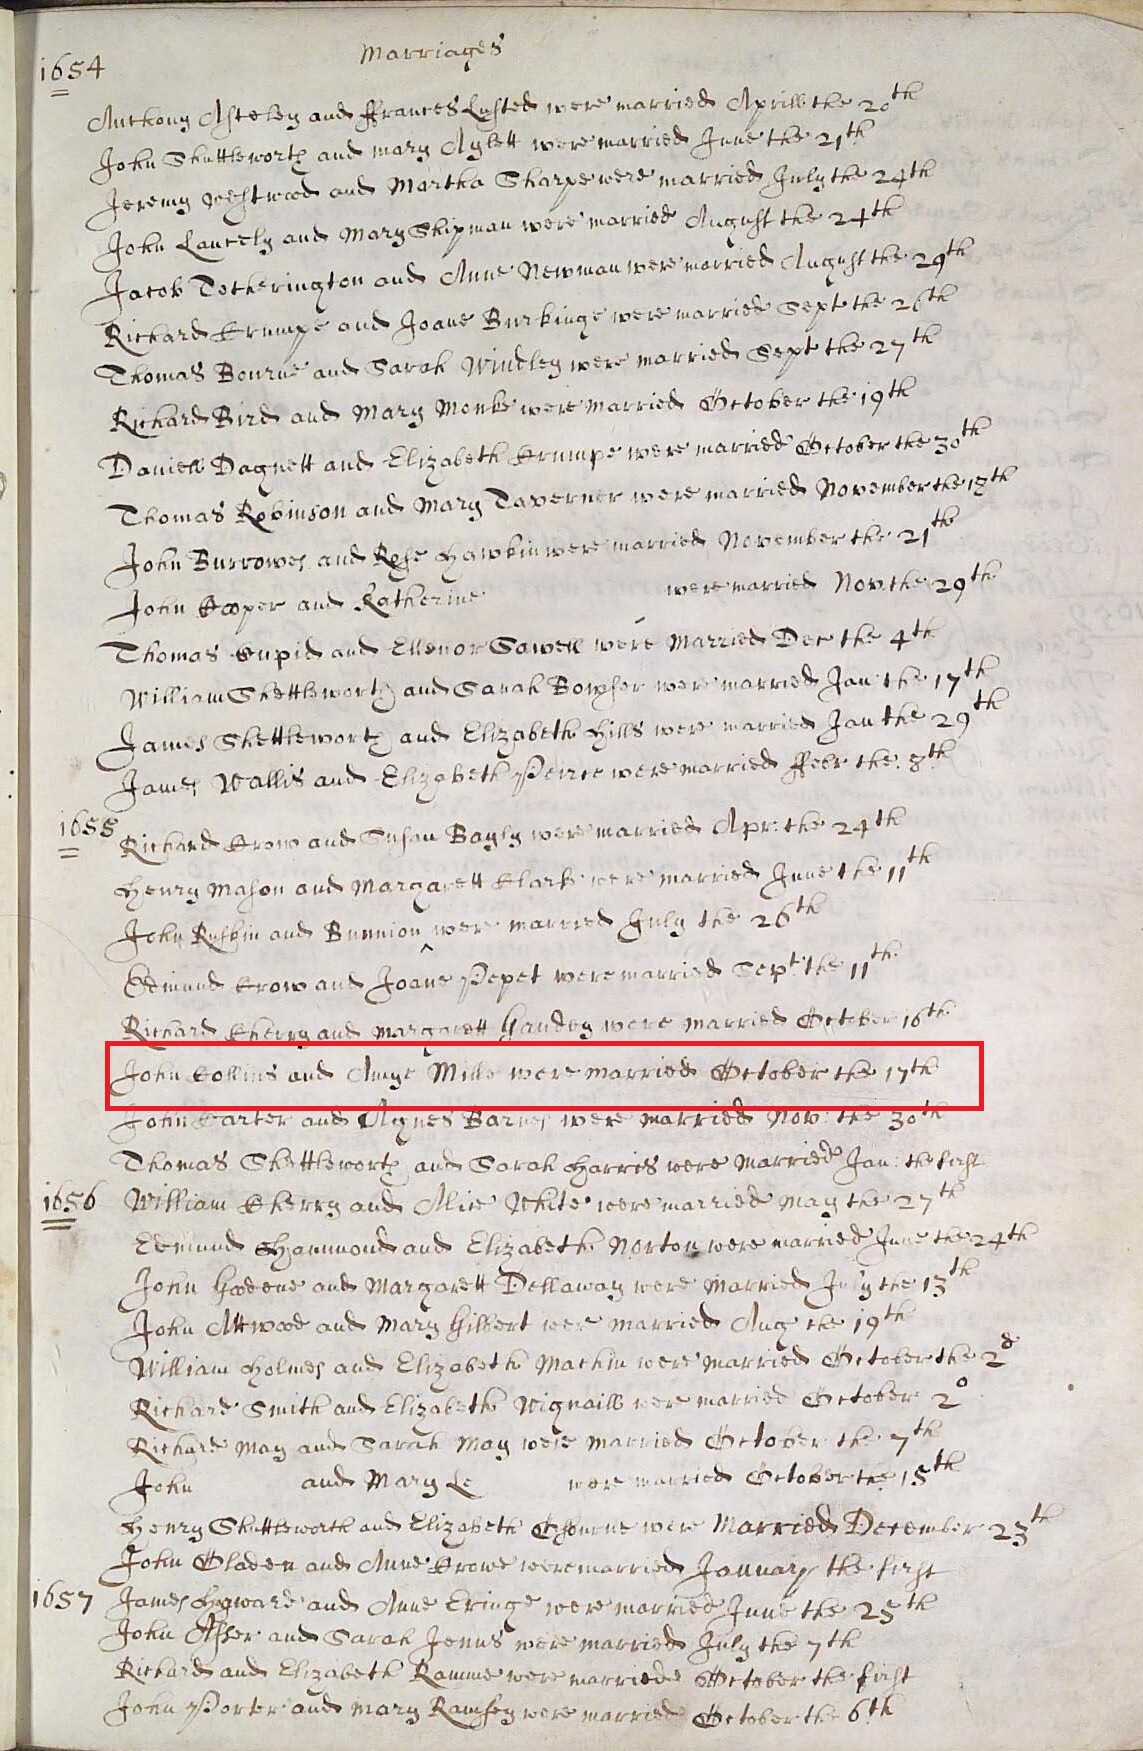 Marriages
1654
Anthony Asteley and ffrances Lusted were married Aprill the 20th
John Shuttleworth and mary Aylett were married June the 21th
Jeremy Westwood and Martha Sharpe were married July the 24th
John Lancely and Mary Shipman were married August the 24th
Jacob Totherington and Anne Newman were married August the 29th
Richard Crumpe and Joane Burkinge were married Sept the 26th
Thomas Bourne and Sarah Windley were married Sept the 27th
Richard Bird and Mary Monke were Married October the 19th
Daniell Dagnett and Elizabeth Crumpe were married October the 30th
Thomas Robinson and Mary Taverner were married November the 13th
John Burrowes and Rose Hawkin were married November the 21th
John Cooper and Katherine were married Nov. the 29th
Thomas Cupid and Ellenor Sawell were Married Dec the 4th
William Shettleworth and Sarah Bowser were married Jan: the 17th
James Shettleworth and Elizabeth Hills were married Jan the 29th
James Wallis and Elizabeth Peirce were married ffebr the 8th
1655
Richard Crow and Susan Bayly were married Apr: the 24th
Henry Mason and Margarett Clarke were married June the 11th
John Ruskin and Bunnion ^ were married July the 26th
Edmund Crow and Joane Pepet were married Sept the 11th
Richard Cherry and Margarett Handey were married October 16th
John Collins and Amye Mills were married October the 17th
John Carter and Agnes Barnes were married Nov: the 30th
Thomas Shettleworth and Sarah Harris were Married Jan: the first
1656
William Cherry and Alice White were married May the 27th
Edmund Hammond and Elizabeth Norton were married June the 24th
John and Margarett Dellaway were Married July the 13th
John Attwood and Mary Gilbert were married Aug the 19th
William Holmes and Elizabeth Machin were Married October the 2d
Richard Smith and Elizabeth Vignaill were married October 2o
Richard May and Sarah May were Married October the 7th
John and Mary Le were married October the 15th
Henry Shuttleworth and Elizabeth Osborne were Married December 23th
John Oladen and Anne Crowe were married January the first
1657
James Howard and Anne Cringe were married June the 25th
John Asser and Sarah Jenns were married July the 7th
Richard and Elizabeth Ramme were married October the first
John Porter and Mary Ramsey were married October the 6th